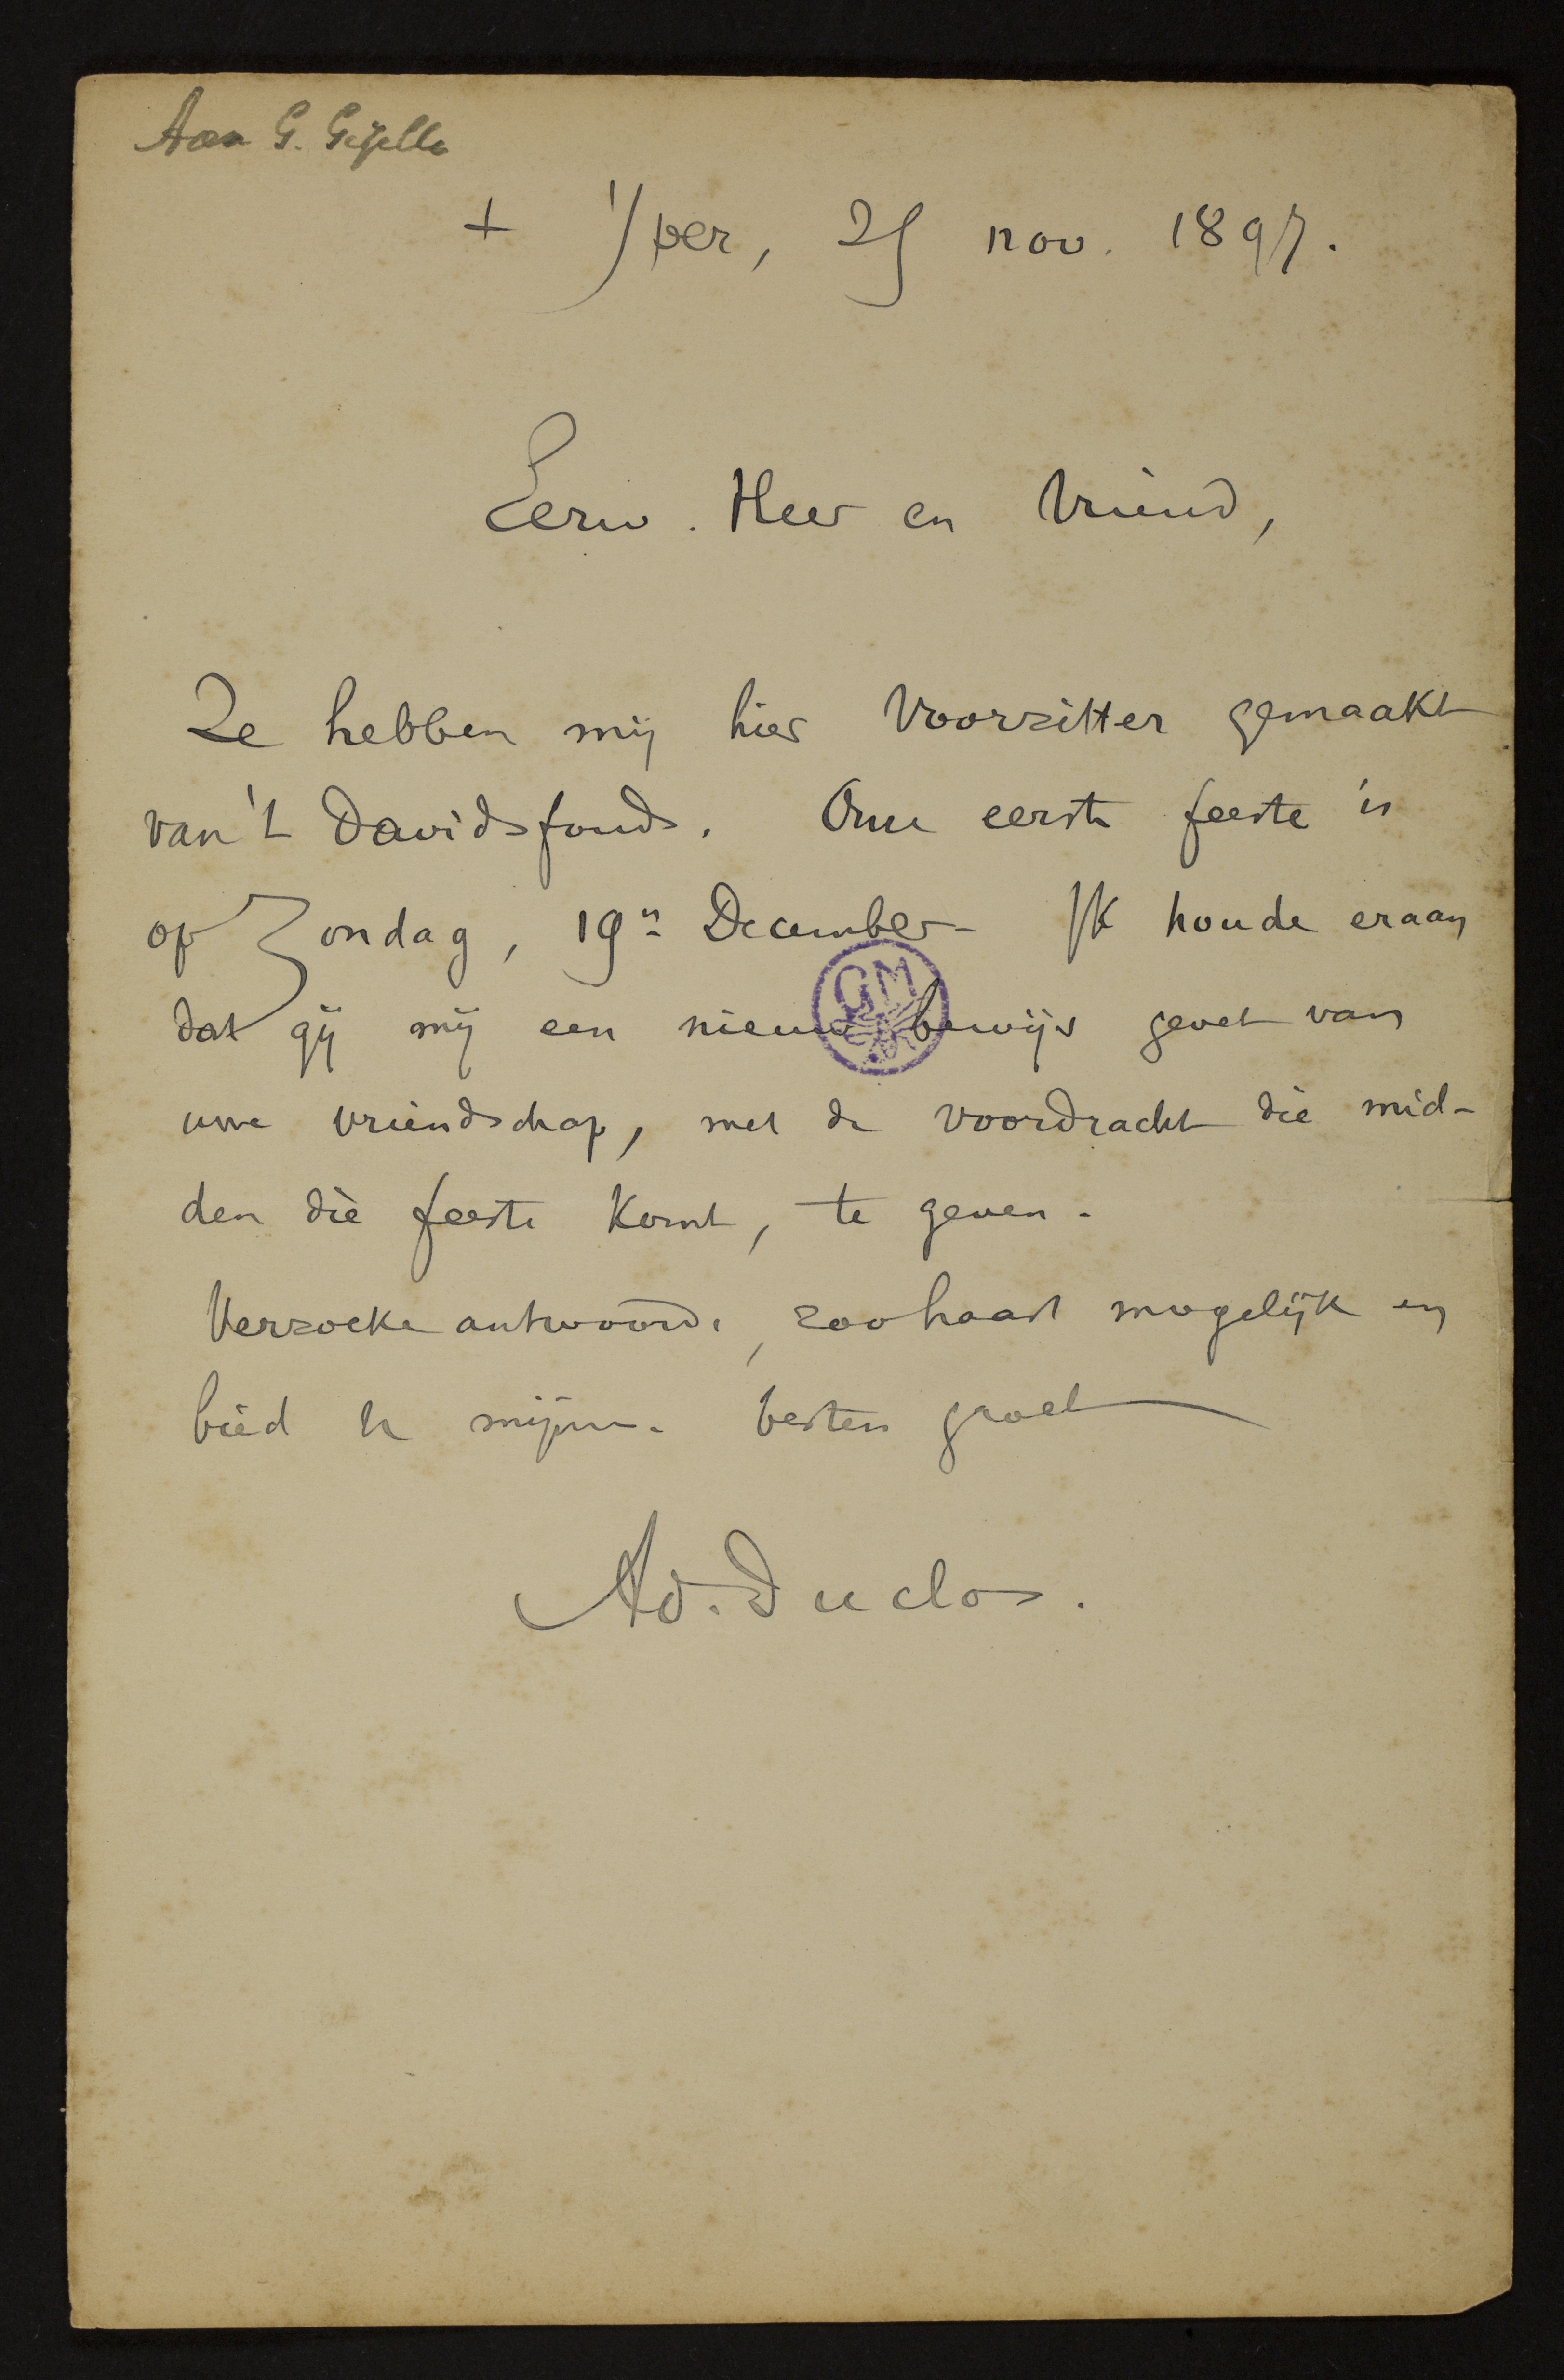 Aan G. Gezelle
+ Yper, 25 nov. 1897.
Eerw. Heer en Vriend,
Ze hebben mij hier Voorzitter gemaakt
van 't Davidsfonds. Onze eerste feeste is
op Zondag, 19n December - Ik houde eraan
dat gij mij een nieuw bewijs gevet van
uwe vriendschap, met de voordracht die mid-
den die feeste komt, te geven.
Verzoeke antwoorde, zoohaast mogelijk en
bied u mijnen besten groet
Ad. Duclos.
GM